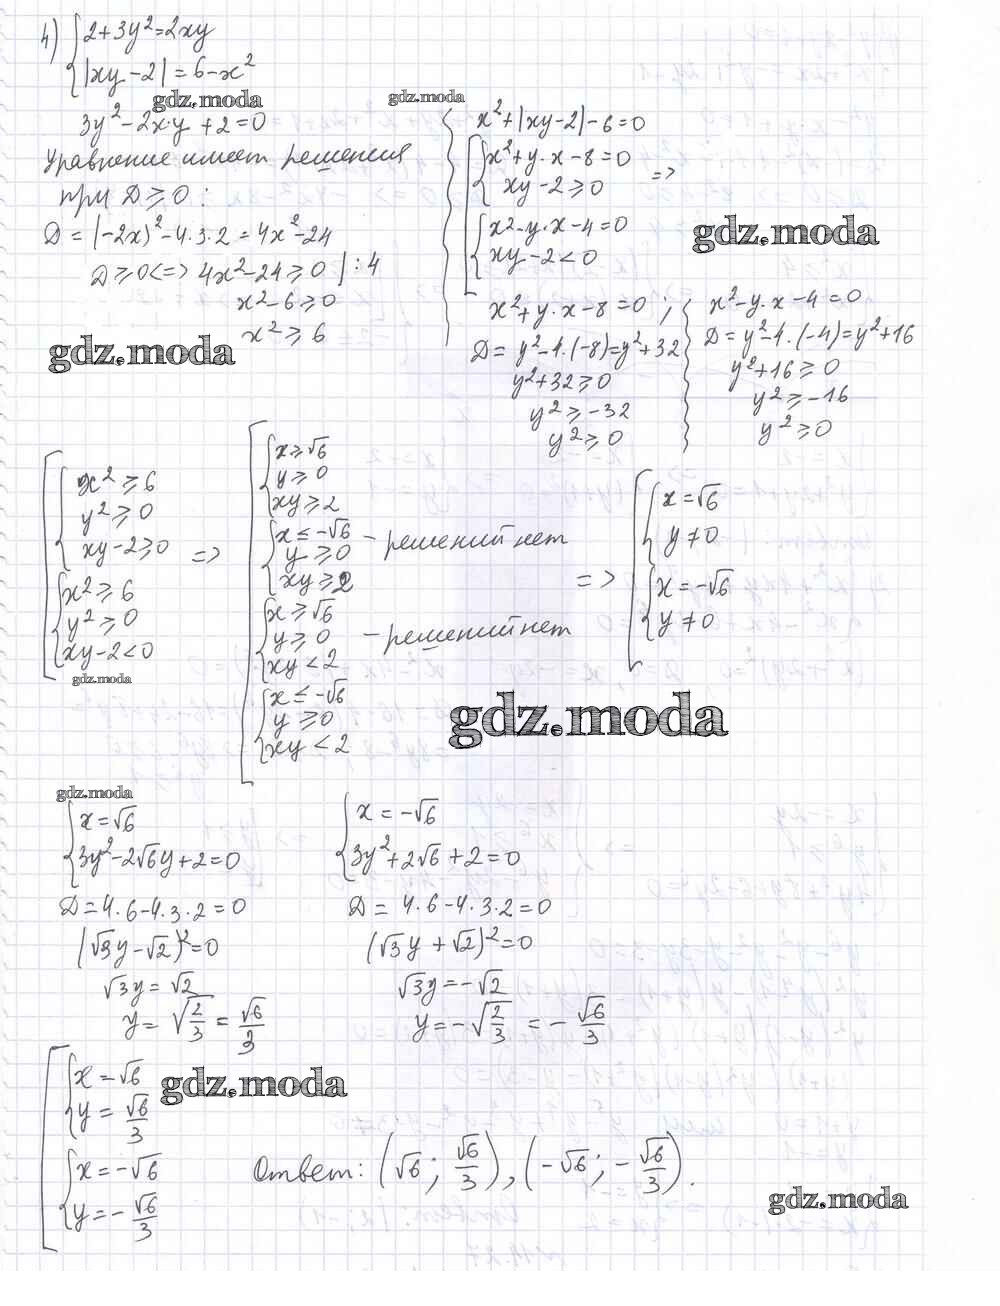 4) { 2+3y²=2xy
|xy-2|=6-x²
gdz.moda
gdz.moda
3y²-2x·y+2=0
Уравнение имеет решения
при D⩾0:
D=(-2x)²-4·3·2=4x²-24
D⩾0<=> 4x²-24⩾0 |:4
x²-6⩾0
x²⩾6
gdz.moda
x²+|xy-2|-6=0
[ { x²+y·x-8=0
xy-2⩾0 =>
{ x²-y·x-4=0
xy-2<0
gdz.moda
x²+y·x-8=0;
D=y²-4·(-8)=y²+32
y²+32⩾0
y²⩾-32
y²⩾0
x²-y·x-4=0
D=y²-4·(-4)=y²+16
y²+16⩾0
y²⩾-16
y²⩾0
[ { x²⩾6
y²⩾0
xy-2⩾0 =>
{ x²⩾6
y²⩾0
xy-2<0
gdz.moda
[ { x⩾√6
y⩾0
xy⩾2
{ x⩽-√6 - решений нет
y⩾0
xy⩾2 =>
{ x⩾√6
y⩾0 - решений нет
xy<2
{ x⩽-√6
y⩾0
xy<2
[ { x=√6
y≠0
{ x=-√6
y≠0
gdz.moda
gdz.moda
{ x=√6
3y²-2√6y+2=0
D=4·6-4·3·2=0
(√3y-√2)²=0
√3y=√2
y=√(2/3)=√6/3
{ x=-√6
3y²+2√6+2=0
D=4·6-4·3·2=0
(√3y+√2)²=0
√3y=-√2
y=-√(2/3)=-√6/3
[ { x=√6
y=√6/3
gdz.moda
{ x=-√6
y=-√6/3
Ответ: (√6; √6/3), (-√6; -√6/3).
gdz.moda